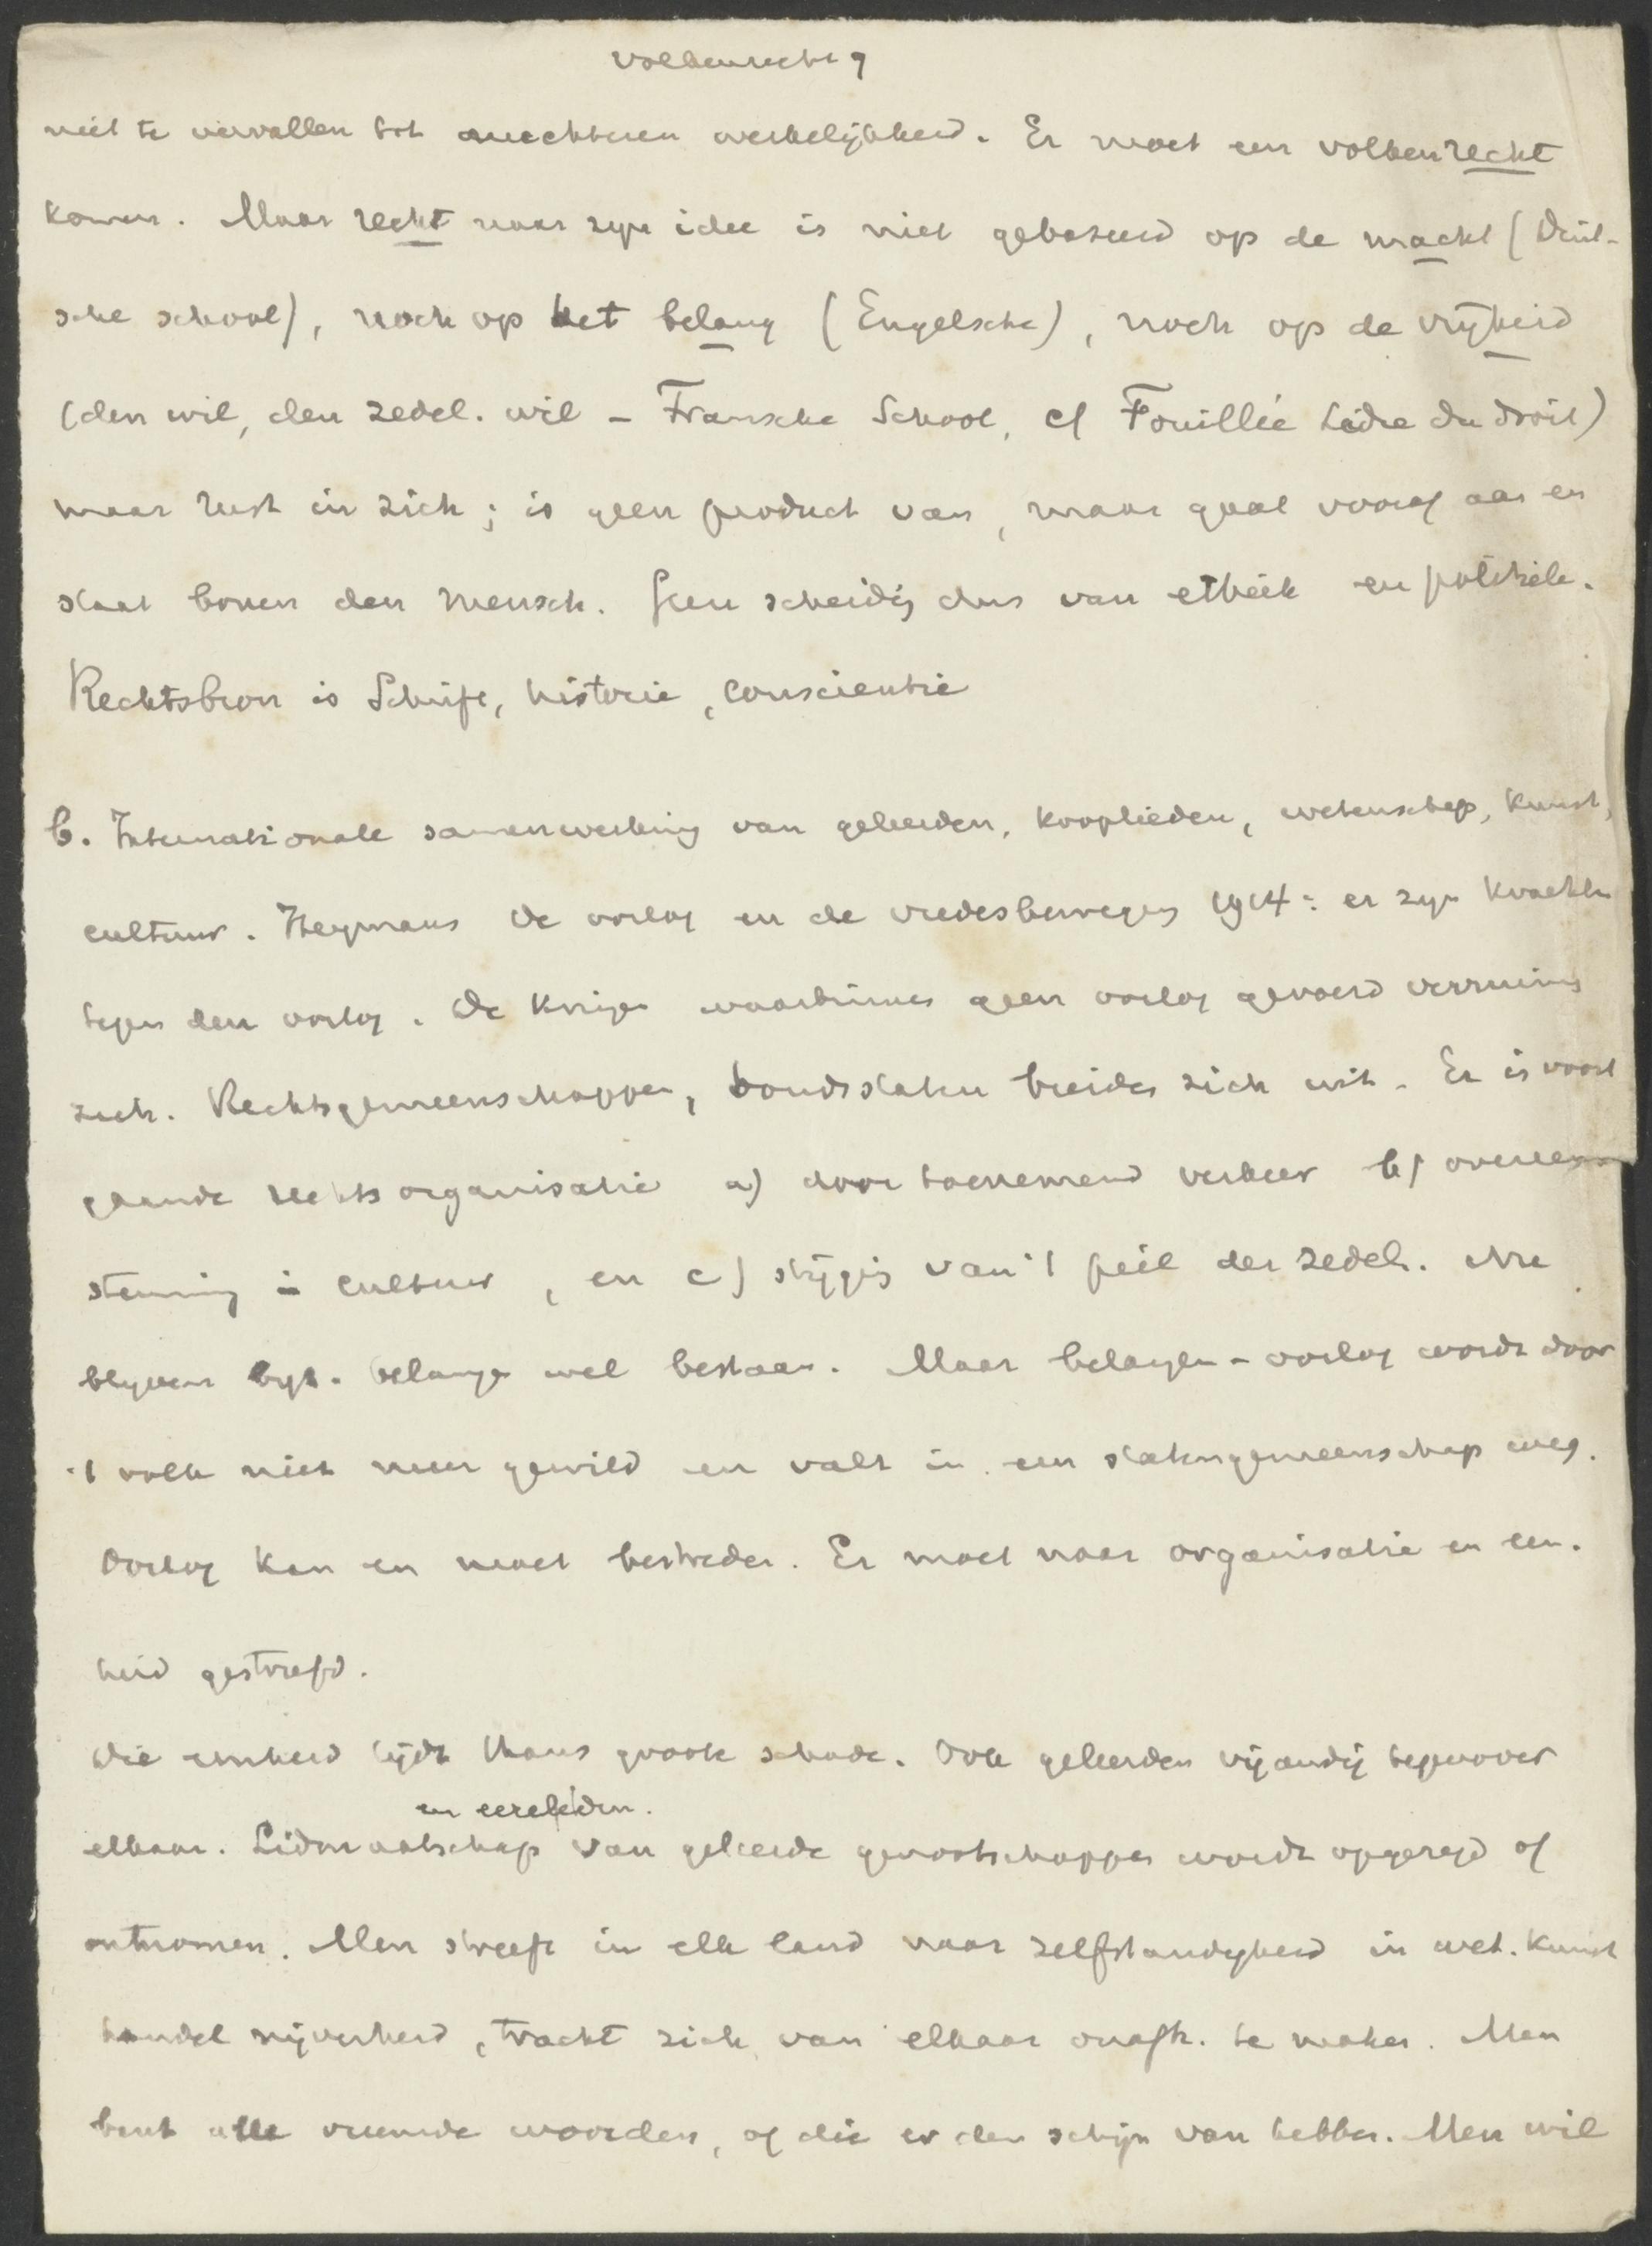 Volkenrecht 9
niet te vervallen tot nuchteren werkelijkheid. Er moet een volkenrecht
komen. Maar recht naar zijn idee is niet gebaseerd op de macht (Duit-
sche school), noch op het belang (Engelsche), noch op de vrijheid
(den wil, den zedel. wil – Fransche School, cf Fouillée L'idée du droit)
maar rust in zich; is geen product van, maar gaat vooraf aan en
staat boven den mensch. Geen scheidg dus van ethiek en politiek.
Rechtsbron is Schrift, historie, conscientie
b. Internationale samenwerking van geleerden, kooplieden, wetenschap, kunst,
cultuur. Heymans De oorlog en de vredesbeweging 1914: er zijn krachten
tegen den oorlog. De kringen waarbinnen geen oorlog gevoerd verruimen
zich. Rechtsgemeenschappen, bondsstaten breiden zich uit. Er is voort
gaande rechtsorganisatie a) door toenemend verkeer b) overeen
stemming in cultuur, en c) stijging van 't peil der zedel. Nu
blijven bijz. belangen wel bestaan. Maar belangen-oorlog wordt door
't volk niet meer gewild en valt in een statengemeenschap weg.
Oorlog kan en moet bestreden. Er moet naar organisatie en een-
heid gestreefd.
Die eenheid lijdt thans groote schade. Ook geleerden vijandig tegenover
en eereleden.
elkaar. Lidmaatschap van geleerde genootschappen wordt opgezegd of
ontnomen. Men streeft in elk land naar zelfstandigheid in wet. kunst
handel nijverheid, tracht zich van elkaar onafh. te maken. Men
bant alle vreemde woorden, of die er den schijn van hebben. Men wil